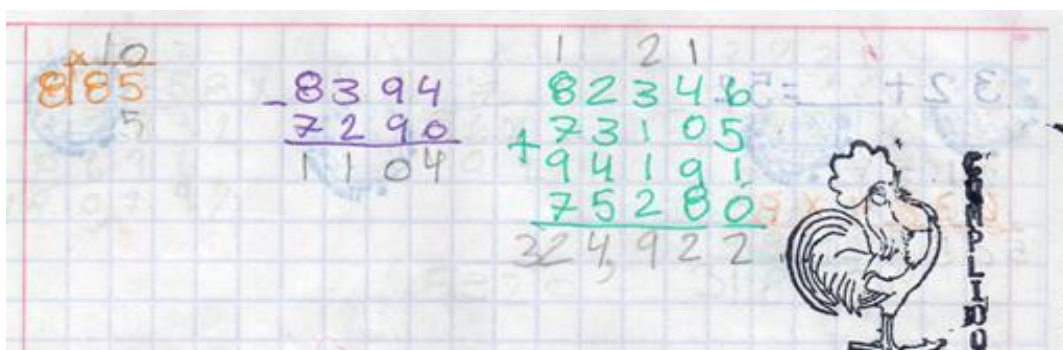 10
8 85
5
-8394
7290
1104
1 21
82346
+73105
94191
75280
324,922
32+___=5
CUMPLIDO